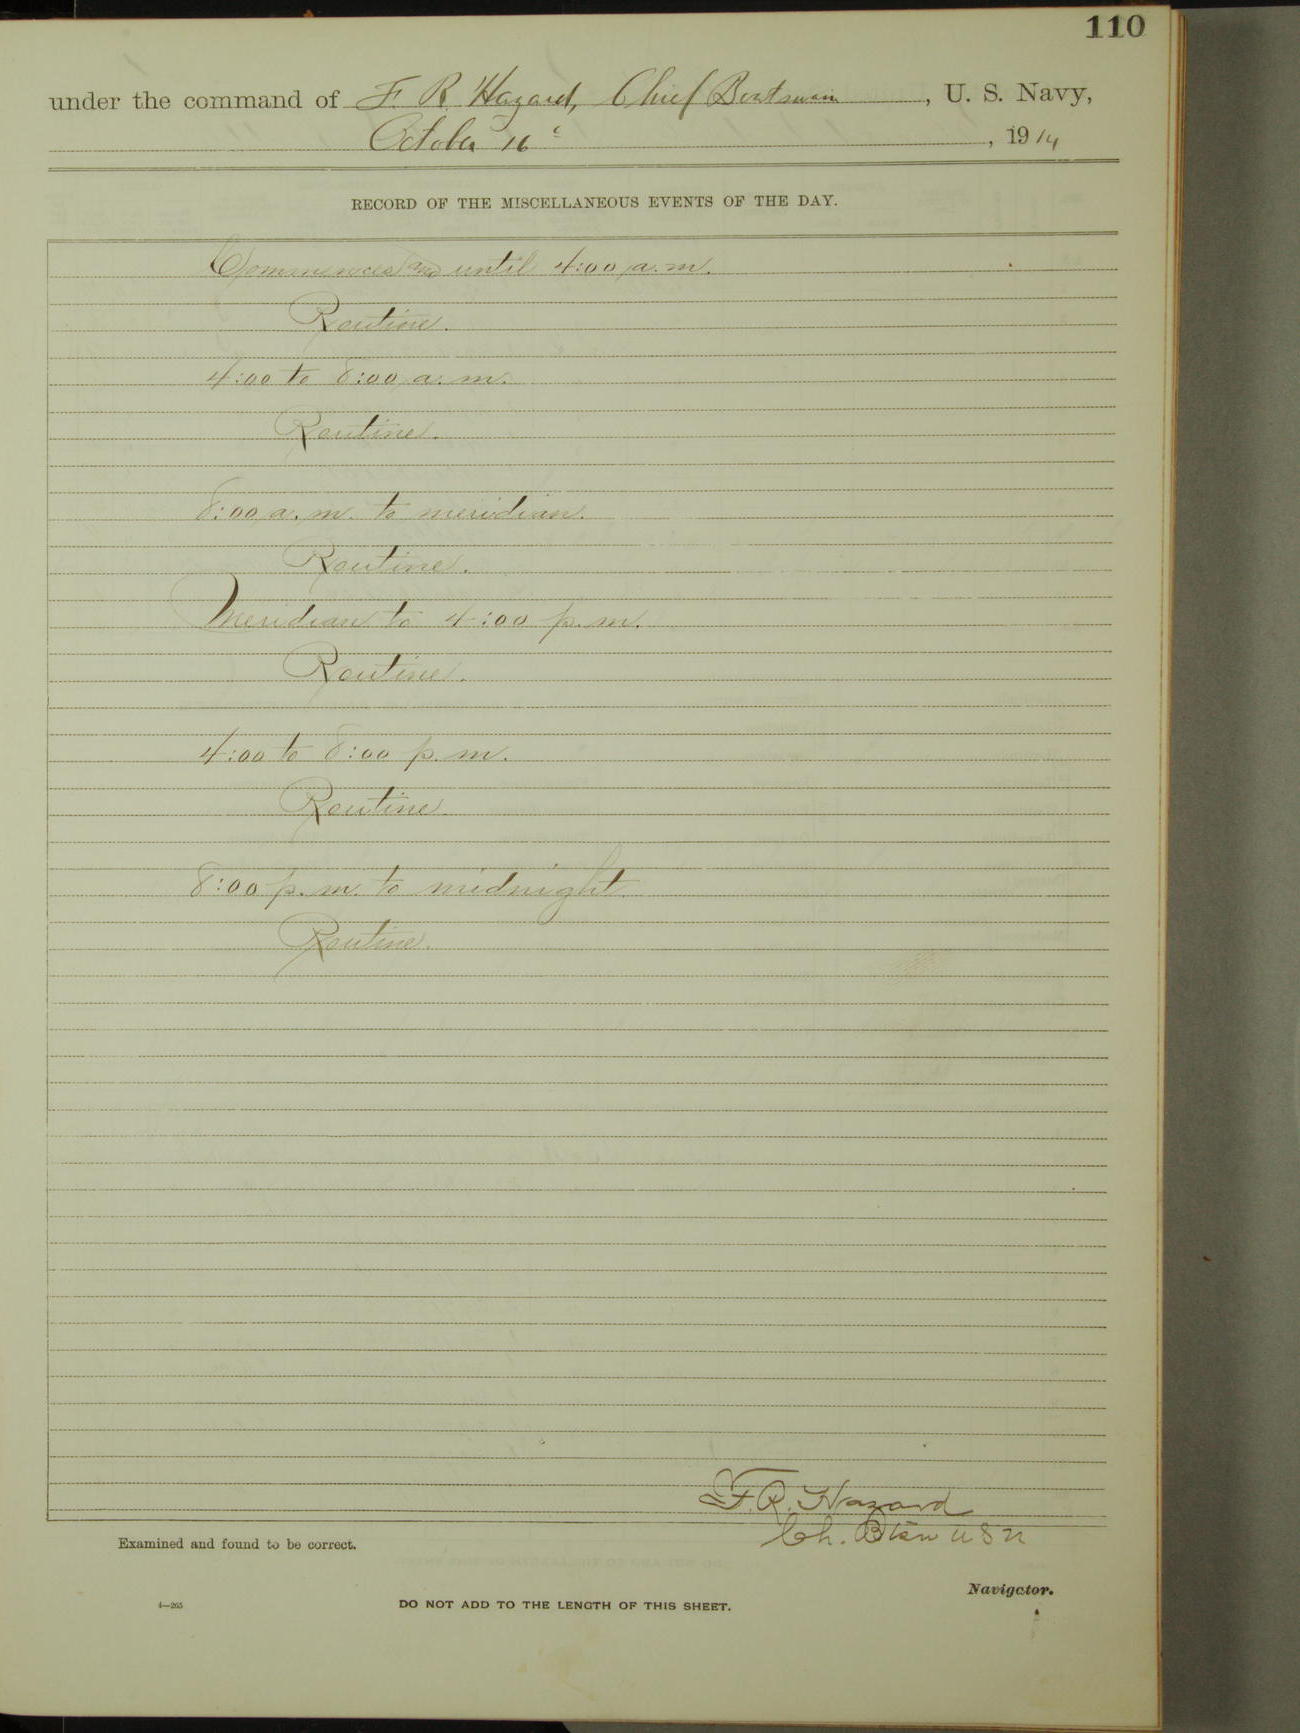 110
under the command of F. R. Hazard, Chief Boatswain, U. S. Navy,
October 16, 1914
RECORD OF THE MISCELLANEOUS EVENTS OF THE DAY.
Commences and until 4:00 a.m.
Routine.
4:00 to 8:00 a.m.
Routine.
8:00 a.m. to meridian.
Routine.
Meridian to 4:00 p.m.
Routine.
4:00 to 8:00 p.m.
Routine.
8:00 p.m. to midnight.
Routine.
F. R. Hazard
Ch. Btsn U S N
Examined and found to be correct.
Navigator.
4—265
DO NOT ADD TO THE LENGTH OF THIS SHEET.